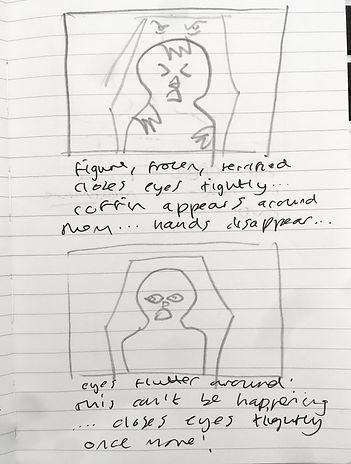 figure, frozen, terrified
closes eyes tightly...
coffin appears around
them... hands disappear...
eyes flutter around.
this can't be happening
.... closes eyes tightly
once more!